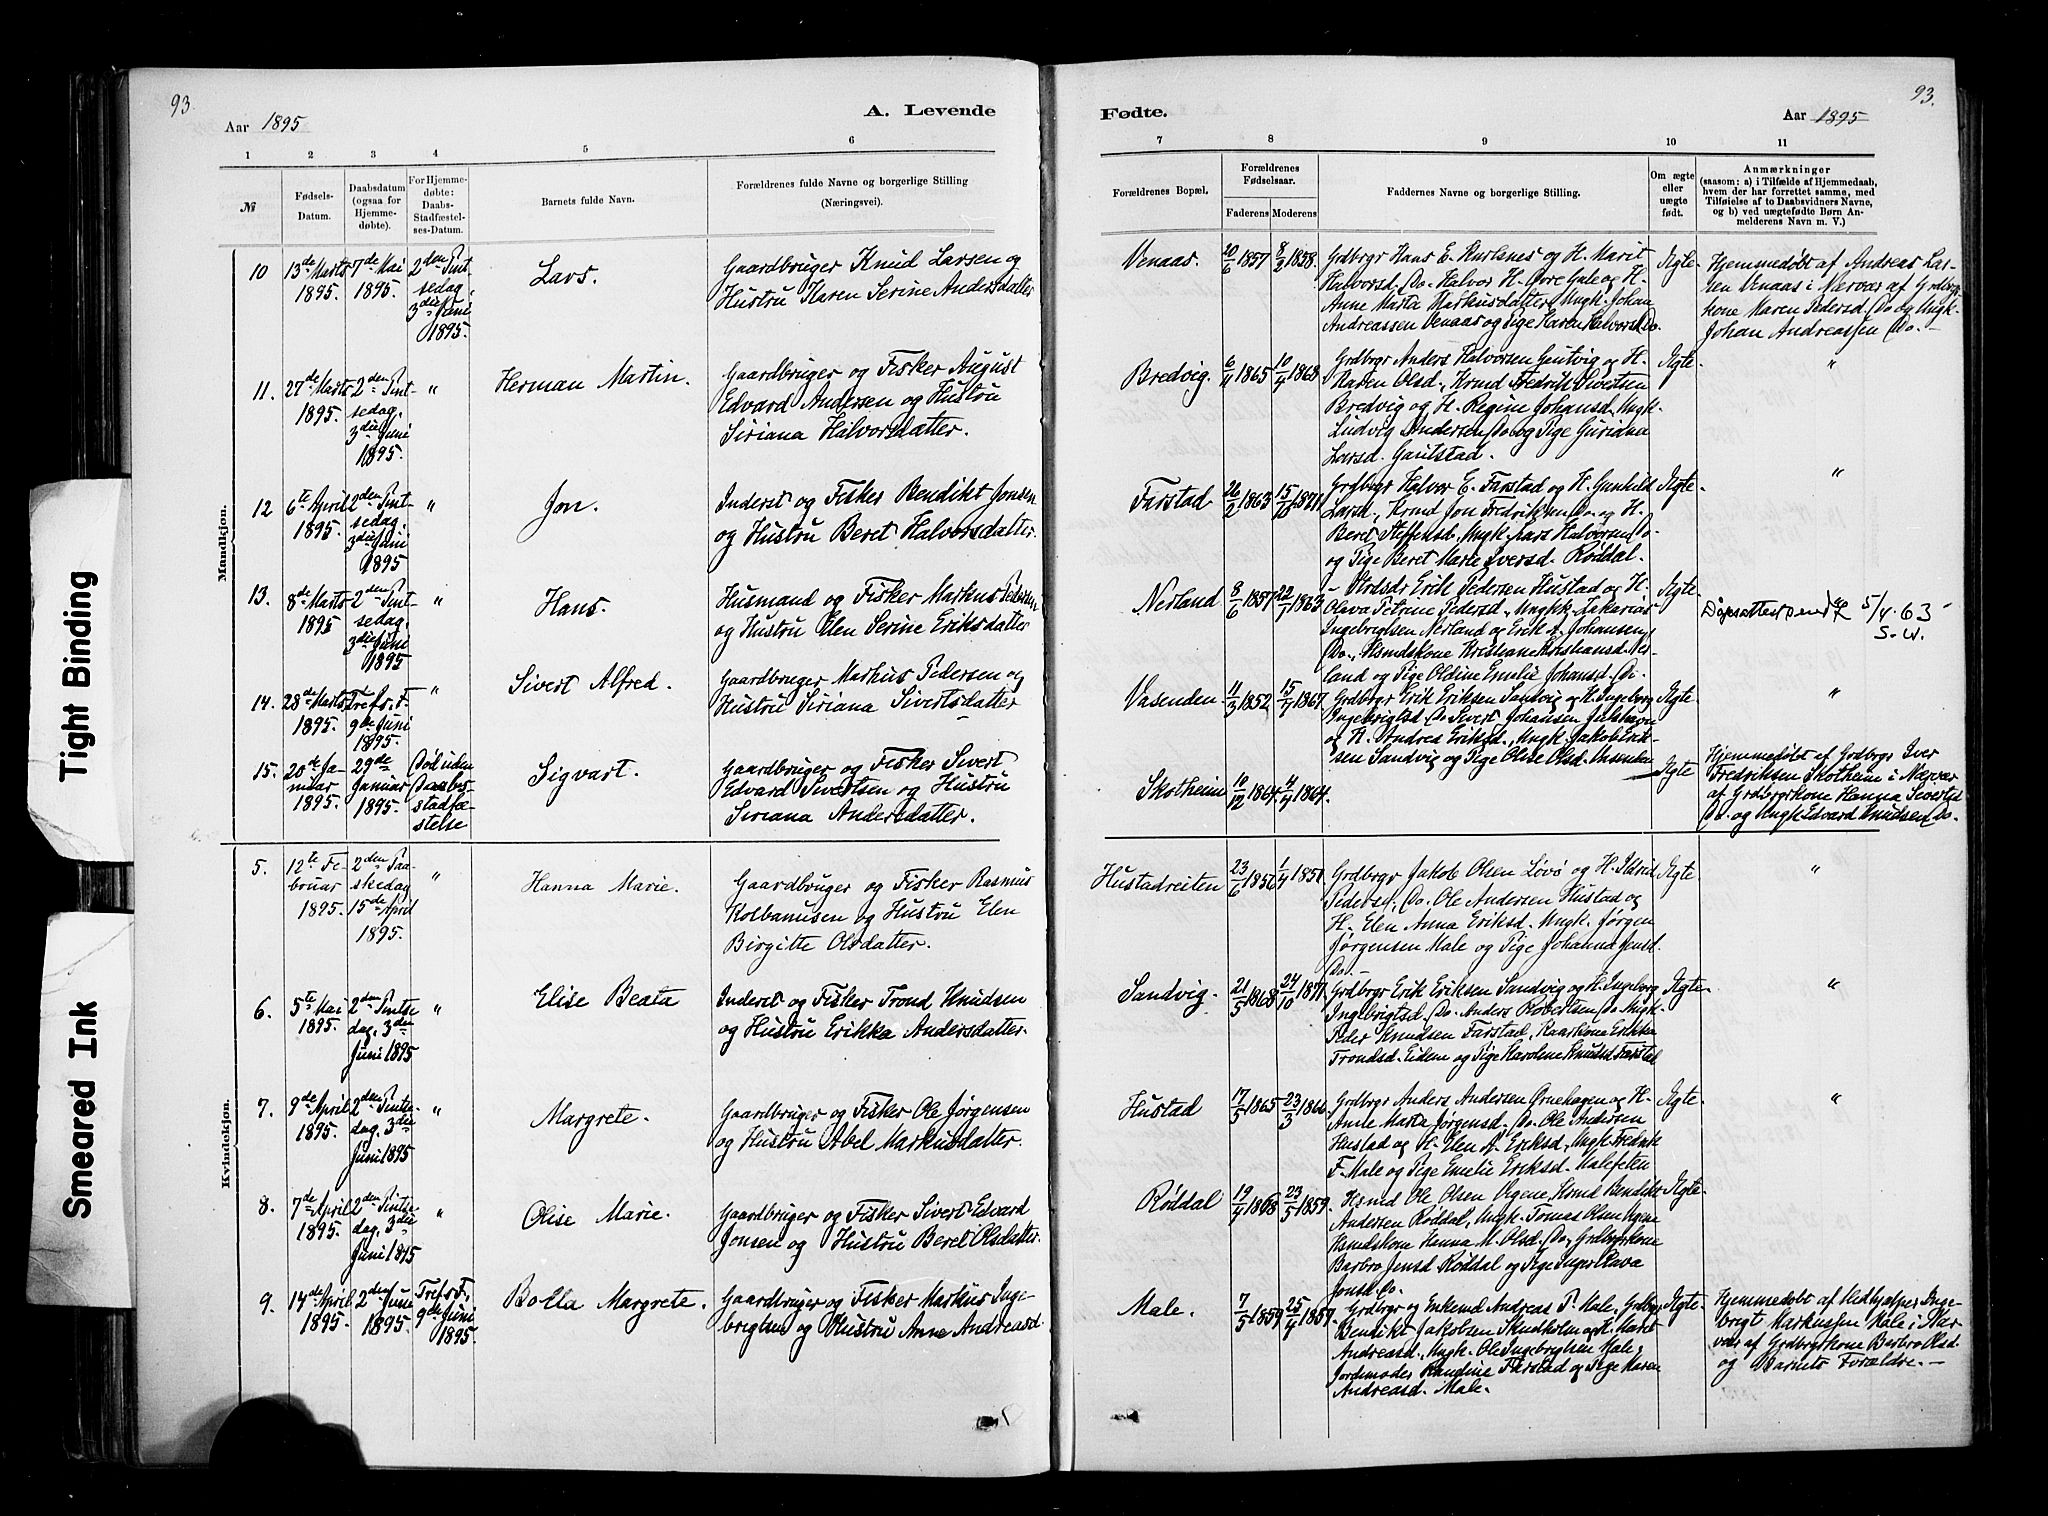 93.
Aar 1895
A. Levende
1 2 3 4 5 6
№
Fødsels-
Datum.
Daabsdatum
(ogsaa for
Hjemme-
døbte).
For Hjemme-
døbte:
Daabs-
Stadfæstel-
ses-Datum.
Barnets fulde Navn.
Forældrenes fulde Navne og borgerlige Stilling
(Næringsvei).
Mandkjøn.
10 13de Marts 1895.
7de Mai 1895.
2den Pint-
sedag,
3die Juni
1895.
Lars.
Gaardbruger Knud Larsen og
Hustru Karen Serine Andersdatter
11. 27de Marts 1895.
2den Pint-
sedag,
3die Juni
1895.
"
Herman Martin.
Gaardbruger og Fisker August
Edvard Andersen og Hustru
Siriana Halvorsdatter.
12 6te April 1895.
2den Pint-
sedag,
3die Juni
1895
"
Jon.
Inderst og Fisker Bendikt Jonsen
og Hustru Beret Halvorsdatter.
13. 8de Marts 1895
2den Pint-
sedag,
3die Juni
1895
"
Hans.
Husmand og Fisker Markus Pedersen
og Hustru Elen Serine Eriksdatter
14. 28de Marts 1895.
Tref. s. F.
9de Juni
1895.
"
Sivert Alfred.
Gaardbruger Markus Pedersen og
Hustru Siriana Sivertsdatter
15. 20de Ja-
nuar
1895.
29de
Januar
1895.
Død uden
Daabs-
stadfæ-
stelse
Sigvart.
Gaardbruger og Fisker Sivert
Edvard Sivertsen og Hustru
Siriana Andersdatter.
Kvindekjøn.
5. 12te Fe-
bruar
1895.
2den Paa-
skedag
15de April
1895.
"
Hanna Marie.
Gaardbruger og Fisker Rasmus
Kolbanusen og Hustru Elen
Birgitte Olsdatter.
6. 5te Mai
1895.
2den Pintse-
dag, 3die
Juni 1895
"
Elise Beata
Inderst og Fisker Trond Knudsen
og Hustru Erikka Andersdatter.
7. 9de April
1895.
2den Pintse-
dag, 3die
Juni 1895
"
Margrete.
Gaardbruger og Fisker Ole Jørgensen
og Hustru Abel Markusdatter.
8. 7de April
1895.
2den Pintse-
dag, 3die
Juni 1895
"
Olise Marie.
Gaardbruger og Fisker Sivert Edvard
Jonsen og Hustru Beret Olsdatter.
9. 14de April
1895.
1895.
Tref. s. F.
9de Juni
1895.
Bolla Margrete.
Gaardbruger og Fisker Markus Inge-
brigtsen og Hustru Anne Andreasd.
93.
Fødte.
Aar 1895
7 8 9 10 11
Forældrenes Bopæl.
Forældrenes
Fødselsaar.
Faderens Moderens
Faddernes Navne og borgerlige Stilling.
Om ægte
eller
uægte
født.
Anmærkninger
(saasom: a) i Tilfælde af Hjemmedaab,
hvem der har forrettet samme, med
Tilføielse af to Daabsvidners Navne,
og b) ved uægtefødte Børn An-
melderens Navn m. V.)
Venaas. 20/6 1857 8/2 1858.
Grdbrgr Hans E. og H. Marit
Halvorsd. Do. Halvor H. Øvre Gule og H.
Anne Marta Markusdatter, Ungk. Johan
Andreassen Venaas og Pige Karen Halvorsd. Do.
Ægte
Hjemmedøbt af Andreas Lar-
sen Venaas i Nærvær af Grdbrgr-
kone Maren Pedersd. Do og Ungk.
Johan Andreassen Do. -
Bredvig. 6/4 1865 10/4 1868
Grdbrgr Anders Halvorsen Gautvig og H.
Karen Olsd., Krmd Fredrik Sivertsen
Bredvig og H. Regine Johansd., Ungk.
Ludvig Andersen Do og Pige Guriana
Larsd. Gaulstad.
Ægte.
"
Farstad 26/2 1863 15/10 1871
Grdbrgr Halvor E. Farstad og H. Gunhild
Larsd., Krmd Jon Fredriksen Do. og H.
Beret Steffensd., Ungk. Lars Halvorsen Do
og Pige Beret Marie Iversd. Røddal.
Ægte
"
Nerland 8/6 1857 22/7 1863
Erik Pedersen Hustad og H.
Oleva Petrine Pedersd., Ungk. Sakarias
Ingebrigtsen Nerland og Erik A. Johansen
Do., Hsmdskone Kristiane Kristiansd. Ner-
land og Pige Oldine Emelie Johansd. Do.
Ægte.
Dåpsattest sendt 5/4 63
S.W.
Vasenden 11/3 1852 15/7 1867
Grdbrgr Erik Eriksen Sandvig og H. Ingeborg
Ingebrigtsd. Do Sivert Johansen Julshavn
og H. Andrea Eriksd., Ungk. Jakob Erik-
sen Sandvig og Pige Olise Olsd.
Ægte
"
Skotheim 10/12 1864. 4/4 1864.
Ægte
Hjemmedøbt af Grdbrgr Iver
Fredriksen Skotheim i Nærvær
af Grdbrgrkone Hanna Sivertsd.
Do. og Ungk. Edvard Knudsen Do.
Hustadreiten 23/6 1856 1/4 1851
Grdbrgr Jakob Olsen Løvø og H. Ildrid
Pedersd., Do. Ole Andersen Hustad og
H. Elen Anna Eriksd. Ungk. Jørgen
Jørgensen Male og Pige Johanna Jensd.
Do.
Ægte
"
Sandvig. 21/5 1868 24/10 1871
Grdbrgr Erik Eriksen Sandvig og H. Ingeborg
Ingebrigtsd. Do. Anders Robertsen Do Ungk.
Peder Knudsen Farstad, Kaarkone Erikka
Trondsd. Eidem og Pige Karoline Knudsd. Farstad
Ægte
"
Hustad 17/5 1865 23/3 1866
Grdbrgr Anders Andersen Ørnehagen og H.
Anne Marta Jørgensd. Do. Ole Andersen
Hustad og H. Elen A. Eriksd., Ungk. Fredrik
F. Male og Pige Emelie Eriksd. Malefeten
Ægte
"
Røddal 19/4 1868 23/5 1859.
Hsmd Ole Olsen Ugene, Krmd Bendikt
Andersen Røddal, Ungk. Tomas Olsen Ugene
Hsmdskone Hanna M. Olsd. Do, Grdbrgrkone
Barbro Jensd Røddal og Pige Inger Pava
Jonsd. Do.
Ægte
Male. 7/5 1859 25/4 1859.
Grdbrgr og Enkemd Andreas P. Male, Grdbrgr
Bendikt Jakobsen Skudholm og H. Maret
Andreasd., Ungk. Ole Ingebrigtsen Male,
Jordmoder Randine Farstad og Pige Karen
Andreasd. Male.
Ægte
Hjemmedøbt af Medhjælper Inge-
brigt Markussen Male i Nær-
vær af Grdbrgrkone Barbro Olsd.
og Barnets Forældre. -
Tight Binding
Smeared Ink